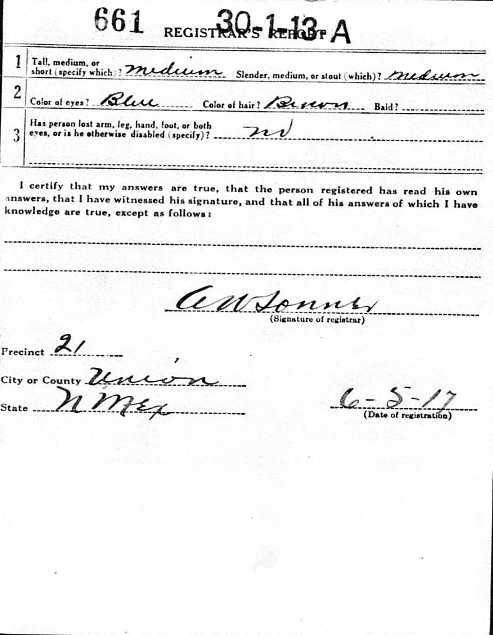 661 30-1-13-A
REGISTRAR'S REPORT
1 Tall, medium, or
short (specify which)? medium Slender, medium, or stout (which)? medium
2 Color of eyes? Blue Color of hair? Brown Bald?
3 Has person lost arm, leg, hand, foot, or both
eyes, or is he otherwise disabled (specify)? no
I certify that my answers are true, that the person registered has read his own
answers, that I have witnessed his signature, and that all of his answers of which I have
knowledge are true, except as follows:
(Signature of registrar)
Precinct 21
City or County Union
State N Mex 6-5-17
(Date of registration)